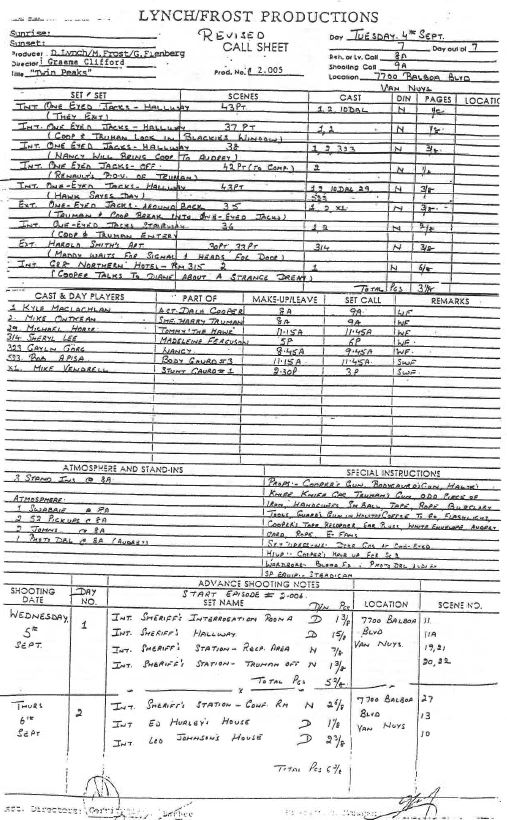 LYNCH/FROST PRODUCTIONS
REVISED
CALL SHEET
Sunrise:
Sunset:
Producer: D. Lynch/M. Frost/G. Fienberg
Director: Graeme Clifford
Title "Twin Peaks"
Prod. No. 2.005
Day TUESDAY. 4th SEPT.
7 Day out of 7
Reh. or Lv. Call 8A
Shooting Call 9A
Location 7700 BALBOA BLVD
VAN NUYS
SET # SET SCENES CAST D/N PAGES LOCATIO
INT. ONE EYED JACKS - HALLWAY 43 PT 1, 2, 10DBL N
(THEY EXIT)
INT. ONE EYED JACKS - HALLWAY 37 PT 1, 2 N
(COOP & TRUMAN LOOK IN BLACKIE'S WINDOW)
INT. ONE EYED JACKS - HALLWAY 38 1, 2, 323 N 3/8
(NANCY WILL BRING COOP TO AUDREY)
INT. ONE EYED JACKS - OFF. 42 PT (TO COMP.) 2 N
(RENAULT'S P.O.V. OF TRUMAN)
INT. ONE-EYED JACKS - HALLWAY 43 PT 1, 2, 10DBL, 29, 523 N 3/8
(HAWK SAVES DAY)
EXT. ONE-EYED JACKS - AROUND BACK 35 1, 2, XL N 3/8
(TRUMAN & COOP BREAK INTO ONE-EYED JACKS)
INT. ONE-EYED JACKS STAIRWAY 36 1, 2 N 2/8
(COOP & TRUMAN ENTER)
EXT. HAROLD SMITH'S APT. 30PT, 33PT 314 N 3/8
(MADDY WAITS FOR SIGNAL & HEADS FOR DOOR)
INT. GREAT NORTHERN HOTEL - RM 315 2 1 N 6/8
(COOPER TALKS TO DIANE ABOUT A STRANGE DREAM)
TOTAL PGS
CAST & DAY PLAYERS PART OF MAKE-UP/LEAVE SET CALL REMARKS
1 KYLE MACLACHLAN AGT. DALE COOPER 8A 9A WF
2. MIKE ONTKEAN SHE. HARRY TRUMAN 8A 9A WF
29 MICHAEL HORSE TOMMY "THE HAWK" 11.15A 11.45A WF
314 SHERYL LEE MADELEINE FERGUSON 5P 6P WF
323 GALYN GORG NANCY 8.45A 9.45A WF
523. BOB APISA BODY GAURD #3 11.15A 11.45A SWF
XL. MIKE VENDRELL STUNT GAURD #1 2.30P 3P SWF
ATMOSPHERE AND STAND-INS
3 STAND INS @ 8A
ATMOSPHERE:
2 52 PICKUPS @ 8A
2 JOHNS @ 8A
1 PHOTO DBL @ 8A (AUDREY)
SPECIAL INSTRUCTIONS
PROPS - COOPER'S GUN, BODYGUARD'S GUN, HAWK'S
KNIFE, KNIFE CASE, TRUMAN'S GUN, ODD PIECE OF
IRON, HANDCUFFS, TAPE, ROPE, BURGLARY
TOOLS, GUARD'S GUN IN HOLSTER, COFFEE TO GO, FLASHLIGHT,
COOPER'S TAPE RECORDER, EAR PLUGS, WHITE ENVELOPE, AUDREY
CARD, ROPE
SP EQUIP - STEADICAM
ADVANCE SHOOTING NOTES
START EPISODE # 2.006.
SHOOTING DATE DAY NO. SET NAME D/N PGS LOCATION SCENE NO.
WEDNESDAY, 5th SEPT. 1 INT. SHERIFF'S INTERROGATION ROOM A D 1 3/8 7700 BALBOA BLVD VAN NUYS. 11
INT. SHERIFF'S HALLWAY D 15/8 11A
INT. SHERIFF'S STATION - RECP. AREA N 7/8 19, 21
INT. SHERIFF'S STATION - TRUMAN OFF N 1 3/8 20, 22
TOTAL PGS
THURS 6th SEPT 2 INT SHERIFF'S STATION - CONF. RM N 7700 BALBOA BLVD VAN NUYS 27
INT ED HURLEY'S HOUSE D 13
INT LEO JOHNSON'S HOUSE D 10
TOTAL PGS